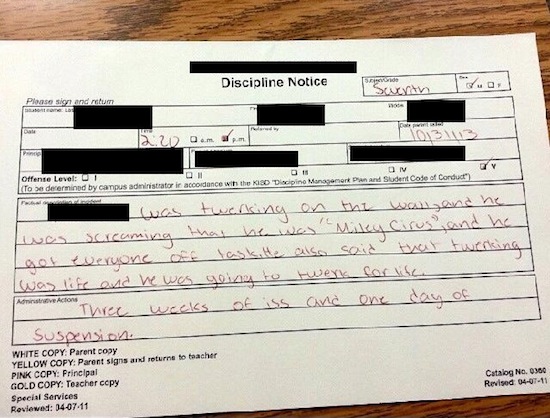 Discipline Notice
Subject/Grade
Seventh
Sex
☑ M ☐ F
Please sign and return
Student name: Last
Middle
Date
Time
2:20 ☐ a.m. ☑ p.m.
Referred by
Date parent called
10/31/13
Offense Level: ☐ I ☐ II ☐ III ☐ IV ☑ V
(To be determined by campus administrator in accordance with the KISD "Discipline Management Plan and Student Code of Conduct")
Factual description of incident
was twerking on the wall and he
was screaming that he was "Miley Cirus", and he
got everyone off task. He also said that twerking
was life and he was going to twerk for life.
Administrative Actions
Three weeks of iss and one day of
Suspension.
WHITE COPY: Parent copy
YELLOW COPY: Parent signs and returns to teacher
PINK COPY: Principal
GOLD COPY: Teacher copy
Special Services
Reviewed: 04-07-11
Catalog No. 0360
Revised: 04-07-11